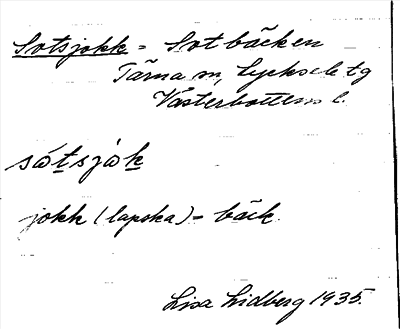 Sotsjokk = Sotbäcken
Tärna sn, Lycksele tg
Västerbottens l.
sátsjàk
jokk (lapska) = bäck.
Lisa Lidberg 1935.